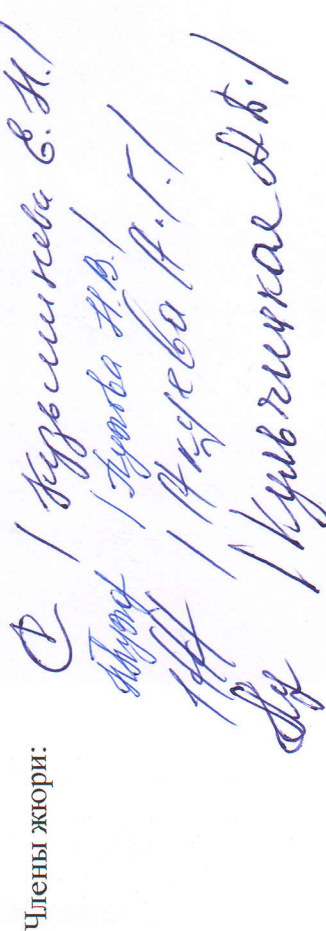 Члены жюри:
/ Кузьминева Е. Н. /
/ Пузова Н. В. /
/ Акуева А. Г. /
/ Кульчицкая Н. Б. /